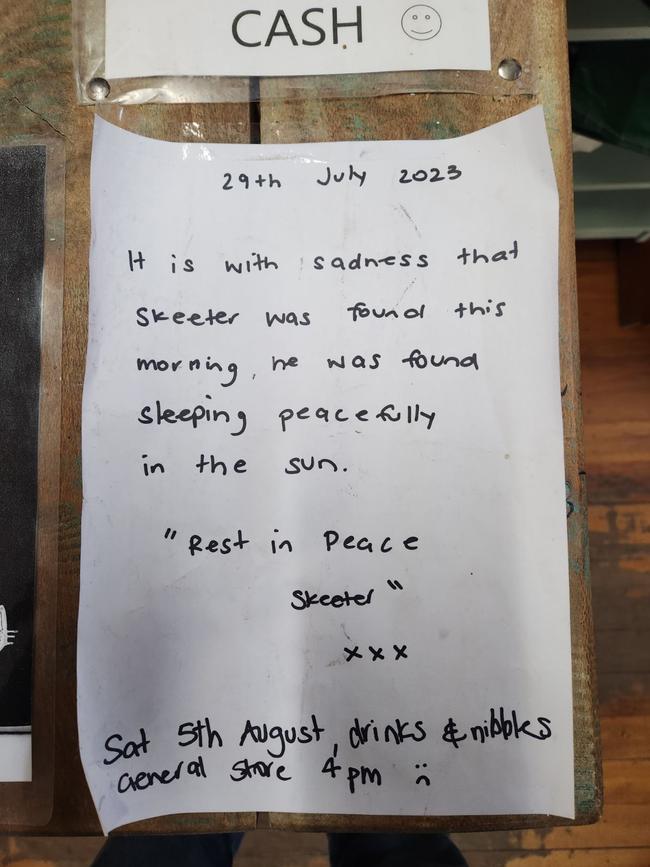 CASH
29th July 2023
It is with sadness that
Skeeter was found this
morning, he was found
sleeping peacefully
in the sun.
"Rest in Peace
Skeeter"
xxx
Sat 5th August, drinks & nibbles
General Store 4pm :(